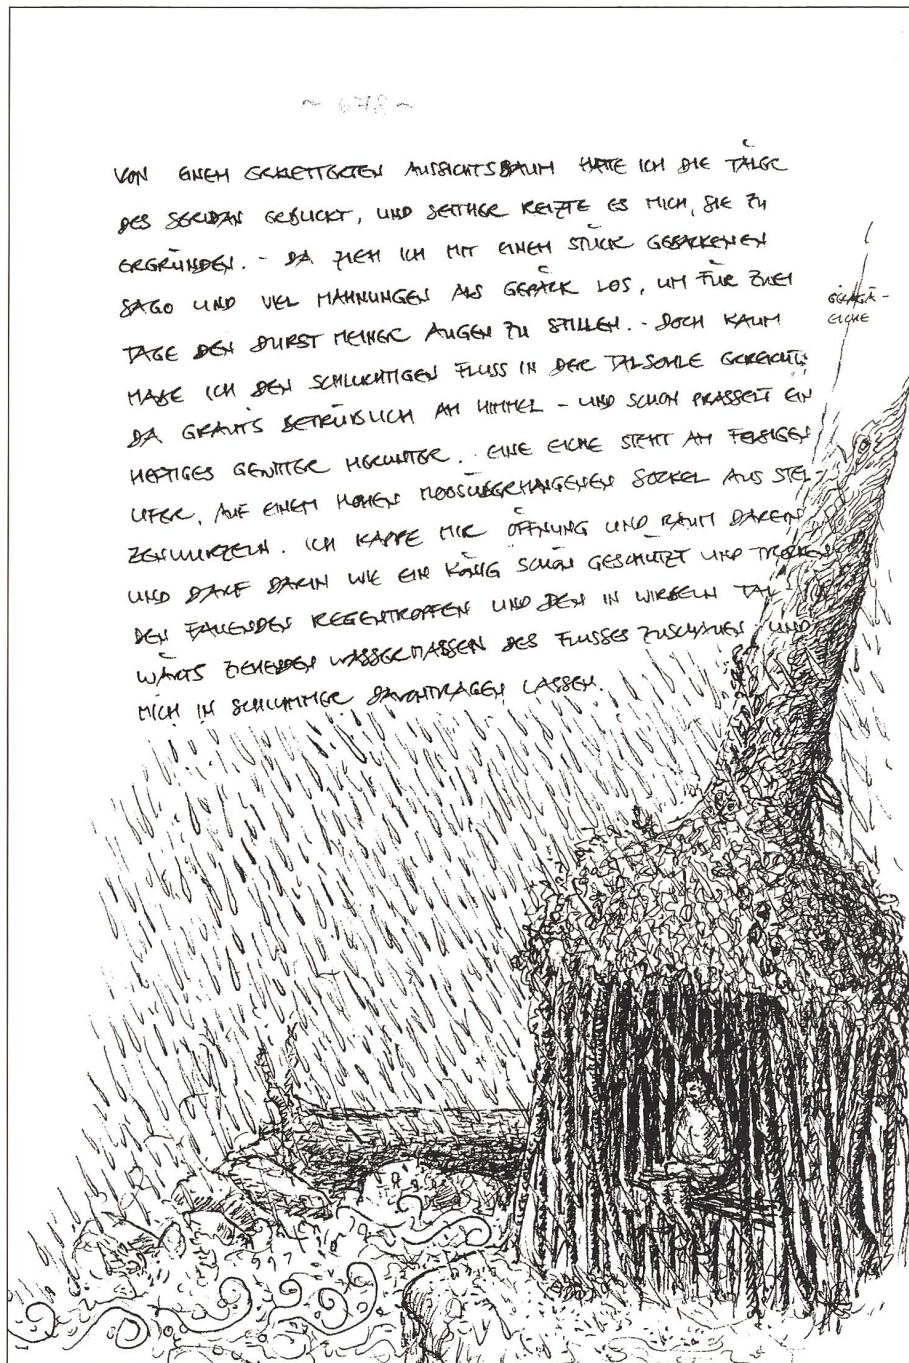 ~ 678 ~
VON EINEM ERKLETTERTEN AUSSICHTSBAUM HATTE ICH DIE TÄLER
DES SERIDAN ERBLICKT, UND SEITHER REIZTE ES MICH, SIE ZU
ERGRÜNDEN. - DA ZIEH ICH MIT EINEM STÜCK GEBACKENEN
SAGO UND VIEL MAHNUNGEN ALS GEPÄCK LOS, UM FÜR ZWEI
TAGE DEN DURST MEINER AUGEN ZU STILLEN. - DOCH KAUM
HABE ICH DEN SCHLUCHTIGEN FLUSS IN DER TALSOHLE ERREICHT,
DA GRAUT'S BETRÜBLICH AM HIMMEL - UND SCHON PRASSELT EIN
HEFTIGES GEWITTER HERUNTER. EINE EICHE STEHT AM FELSIGEN
UFER, AUF EINEM HOHEN MOOSÜBERHANGENEN SOCKEL AUS STEL-
ZENWURZELN. ICH KAPPE MIR ÖFFNUNG UND RAUM DAREIN
UND DARF DARIN WIE EIN KÖNIG SCHÖN GESCHÜTZT UND TROCKEN
DEN FALLENDEN REGENTROPFEN UND DEN IN WIRBELN TAL-
WÄRTS ZIEHENDEN WASSERMASSEN DES FLUSSES ZUSCHAUEN UND
MICH IN SCHLUMMER DAVONTRAGEN LASSEN.
EICHE